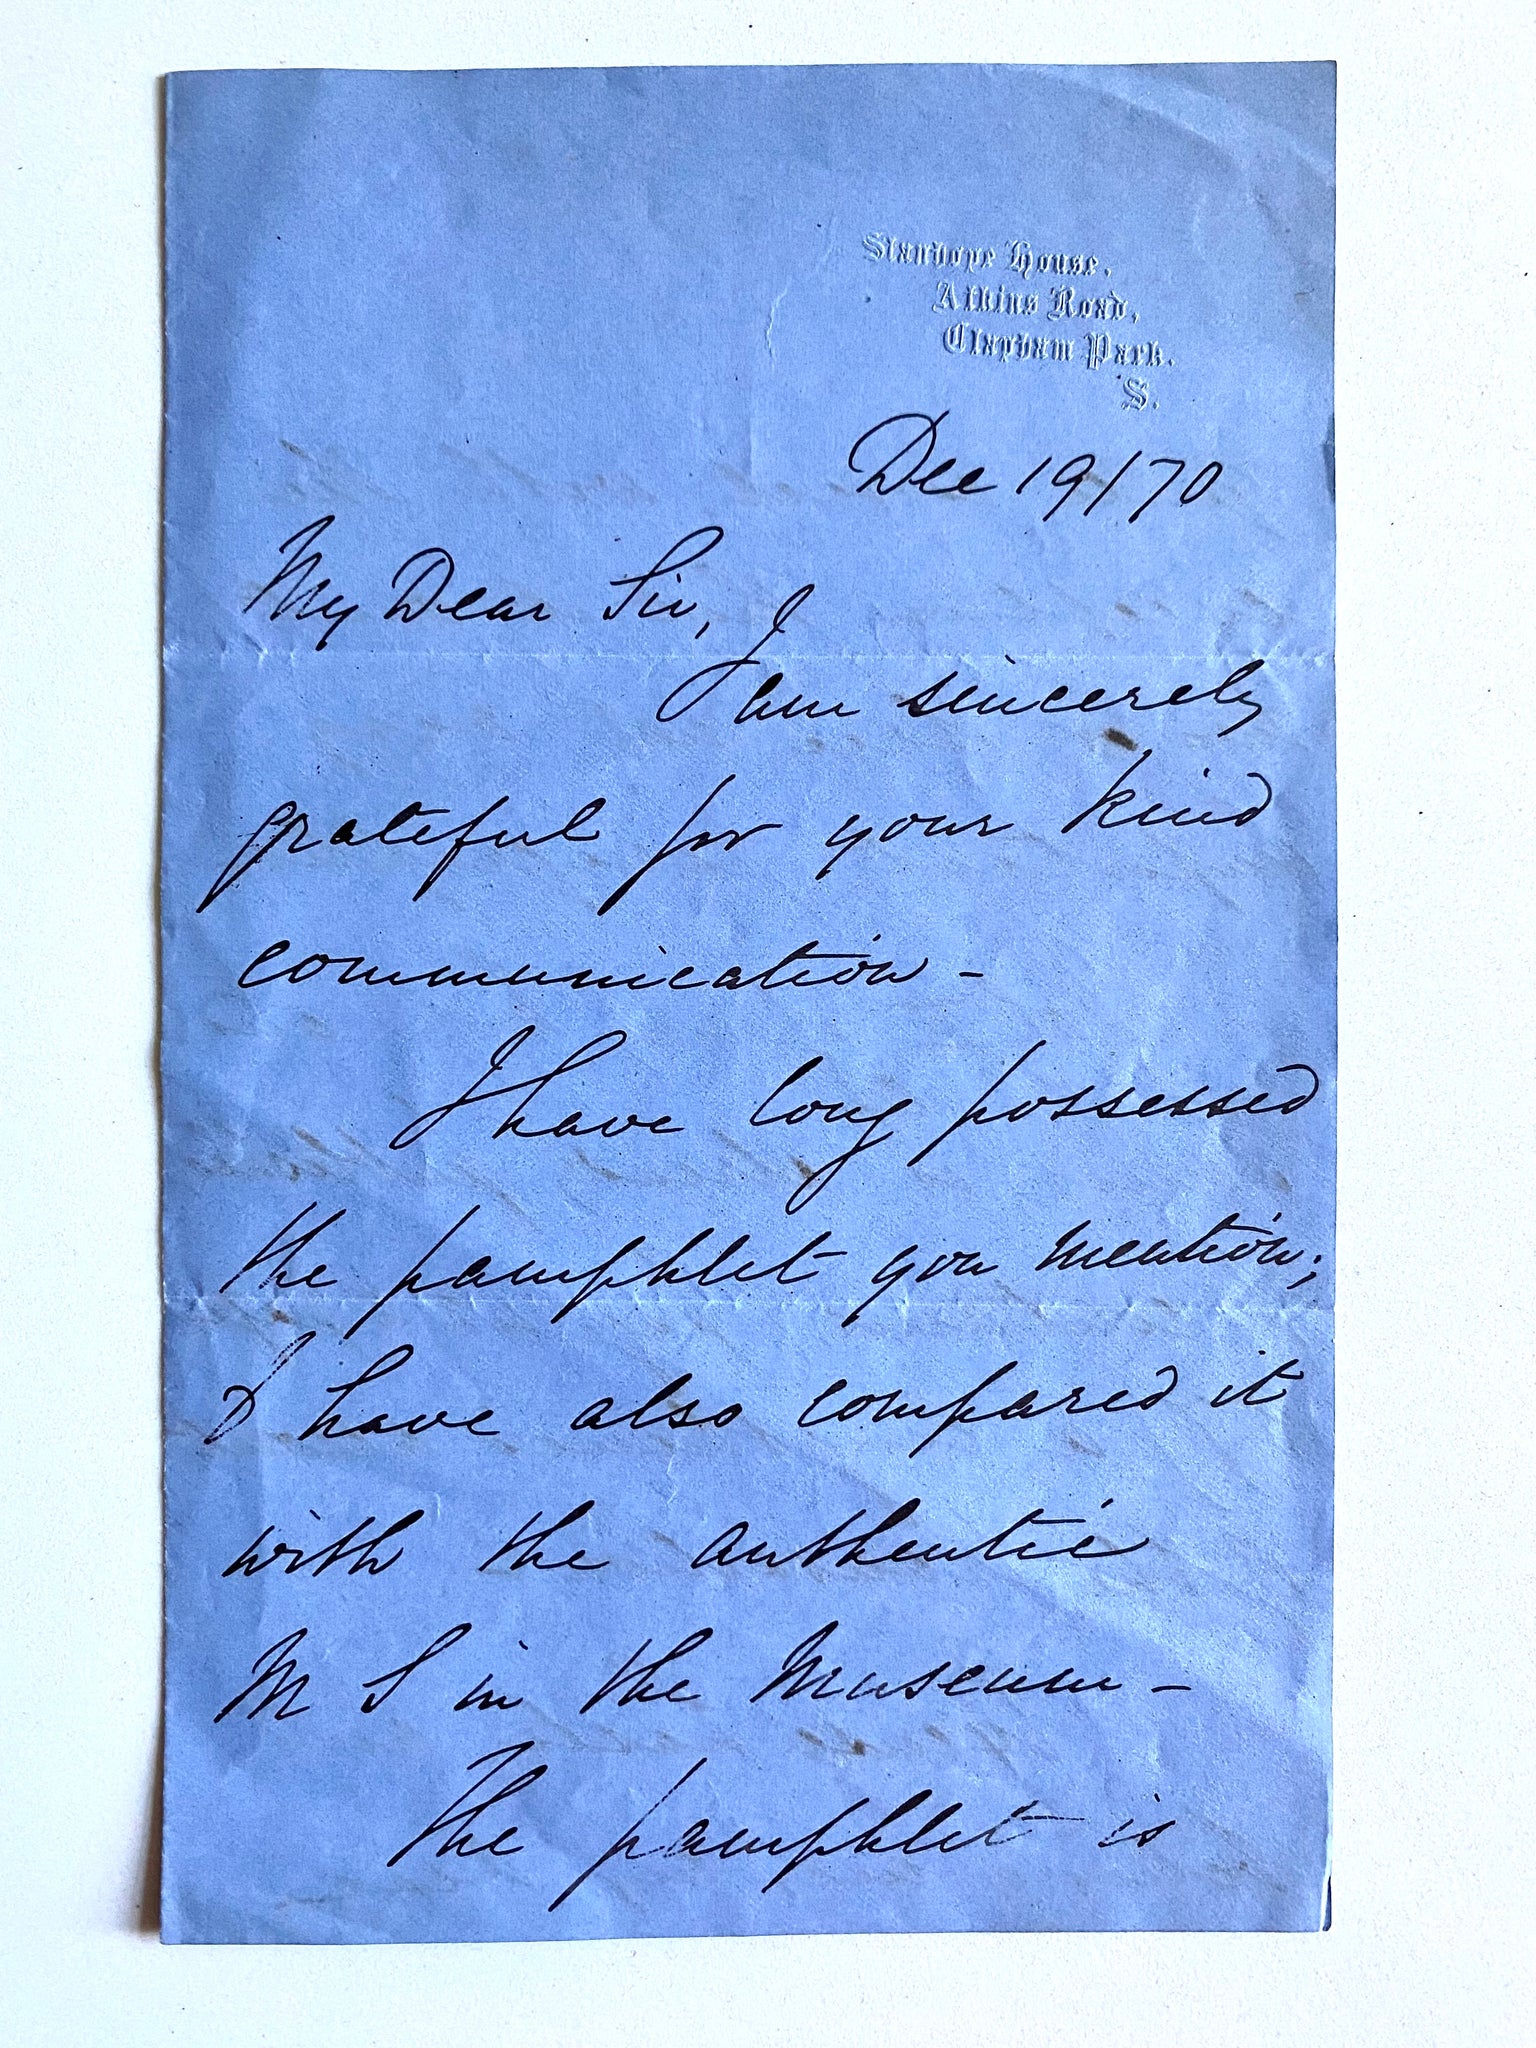 Stanhope House,
Atkins Road,
Clapham Park.
S.
Dec 19/70
My Dear Sir,
I am sincerely
grateful for your kind
communication -
I have long possessed
the pamphlet you mention;
I have also compared it
with the authentic
M S in the Museum -
The pamphlet is